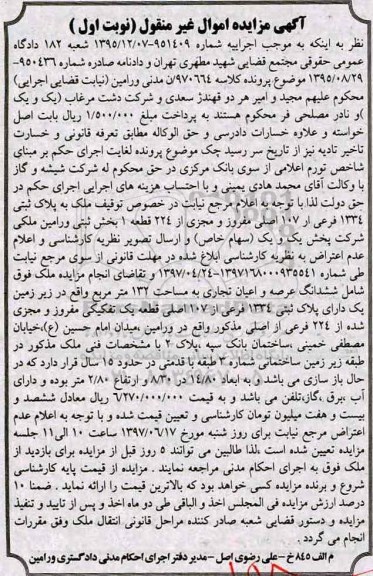 آگهی مزایده اموال غیر منقول (نوبت اول )
نظر به اینکه به موجب اجراییه شماره ۹۵۱۴۰۹-۱۳۹۵/۱۲/۰۷ شعبه ۱۸۲ دادگاه
عمومی حقوقی مجتمع قضایی شهید مطهری تهران و دادنامه صادره شماره ۹۵۰۴۳۶-
۱۳۹۵/۰۸/۲۹ موضوع پرونده کلاسه ۹۷۰۶۶۴/ن مدنی ورامین (نیابت قضایی اجرایی)
محکوم علیهم مجید و امیر هر دو قهندژ سعدی و شرکت دشت مرغاب (یک و یک
)و نادر مصلحی فر محکوم هستند به پرداخت مبلغ ۱/۵۰۰/۰۰۰ ریال بابت اصل
خواسته و علاوه خسارات دادرسی و حق الوکاله مطابق تعرفه قانونی و خسارت
تاخیر تادیه نیز از تاریخ سر رسید چک موضوع پرونده لغایت اجرای حکم بر مبنای
شاخص تورم اعلامی از سوی بانک مرکزی در حق محکوم له شرکت شیشه و گاز
با وکالت آقای محمد هادی یمینی و با احتساب هزینه های اجرایی اجرای حکم در
حق دولت لذا با توجه به اعلام مرجع نیابت در خصوص توقیف ملک به پلاک ثبتی
۱۳۳۴ فرعی از ۱۰۷ اصلی مفروز و مجزی از ۲۲۴ قطعه ۱ بخش ثبتی ورامین ملکی
شرکت پخش یک و یک (سهام خاص) و ارسال تصویر نظریه کارشناسی و اعلام
عدم اعتراض به نظریه کارشناسی ابلاغ شده در مهلت قانونی از سوی مرجع نیابت
طی شماره ۱۳۹۷۱۶۸۰۰۰۹۳۵۵۴۱-۱۳۹۷/۰۴/۲۴ و تقاضای انجام مزایده ملک فوق
شامل ششدانگ عرصه و اعیان تجاری به مساحت ۱۳۲ متر مربع واقع در زیر زمین
یک دارای پلاک ثبتی ۱۳۳۴ فرعی از ۱۰۷ اصلی قطعه یک تفکیکی مفروز و مجزی
شده از ۲۲۴ فرعی از اصلی مذکور واقع در ورامین ،میدان امام حسین (ع)،خیابان
مصطفی خمینی ،ساختمان بانک سپه ،پلاک ۲ با مشخصات فنی ملک مذکور در
طبقه زیر زمین ساختمانی شماره ۳ طبقه با قدمتی در حدود ۱۵ سال قرار دارد که در
حال باز سازی می باشد و به ابعاد ۱۴/۸۰ در ۸/۳۰ و ارتفاع ۲/۸۰ متر بوده و دارای
آب ،برق ،گاز،تلفن می باشد و به قیمت ۶/۲۷۰/۰۰۰/۰۰۰ ریال معادل ششصد و
بیست و هفت میلیون تومان کارشناسی و تعیین قیمت شده و با توجه به اعلام عدم
اعتراض مرجع نیابت برای روز شنبه مورخ ۱۳۹۷/۰۶/۱۷ ساعت ۱۰ الی۱۱ جلسه
مزایده تعیین شده است ،لذا طالبین می توانند ۵ روز قبل از مزایده برای بازدید از
ملک فوق به اجرای احکام مدنی مراجعه نمایند . مزایده از قیمت پایه کارشناسی
شروع و برنده مزایده کسی خواهد بود که بالاترین قیمت را ارائه نماید . ضمنا ۱۰
درصد ارزش مزایده فی المجلس اخذ و الباقی طی دو ماه اخذ و پس از تایید و تنفیذ
مزایده و دستور قضایی شعبه صادر کننده مراحل قانونی انتقال ملک وفق مقررات
انجام می گردد .
م الف ۸۴۵ خ -علی رضوی اصل -مدیر دفتر اجرای احکام مدنی دادگستری ورامین